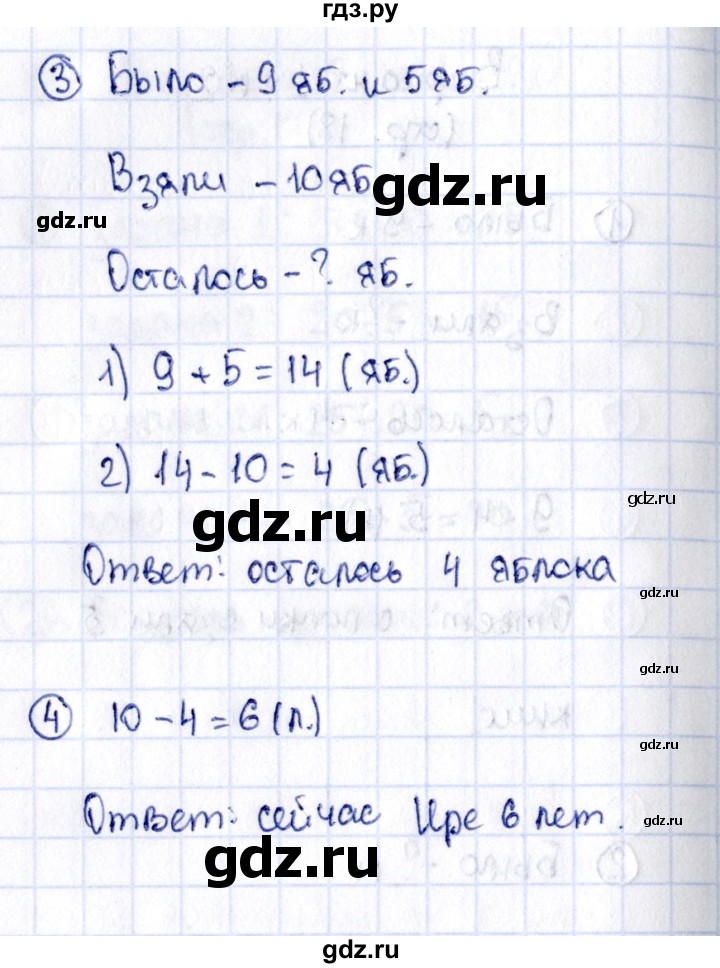 гдз.ру
③ Было – 9 яб. и 5 яб.
Взяли – 10 яб
gdz.ru
gdz.ru
Осталось – ? яб.
1) 9 + 5 = 14 (яб.)
2) 14 – 10 = 4 (яб.)
gdz.ru
gdz.ru
Ответ: осталось 4 яблока
gdz.ru
gdz.ru
④ 10 – 4 = 6 (л.)
gdz.ru
Ответ: сейчас Ире 6 лет.
gdz.ru
gdz.ru
gdz.ru